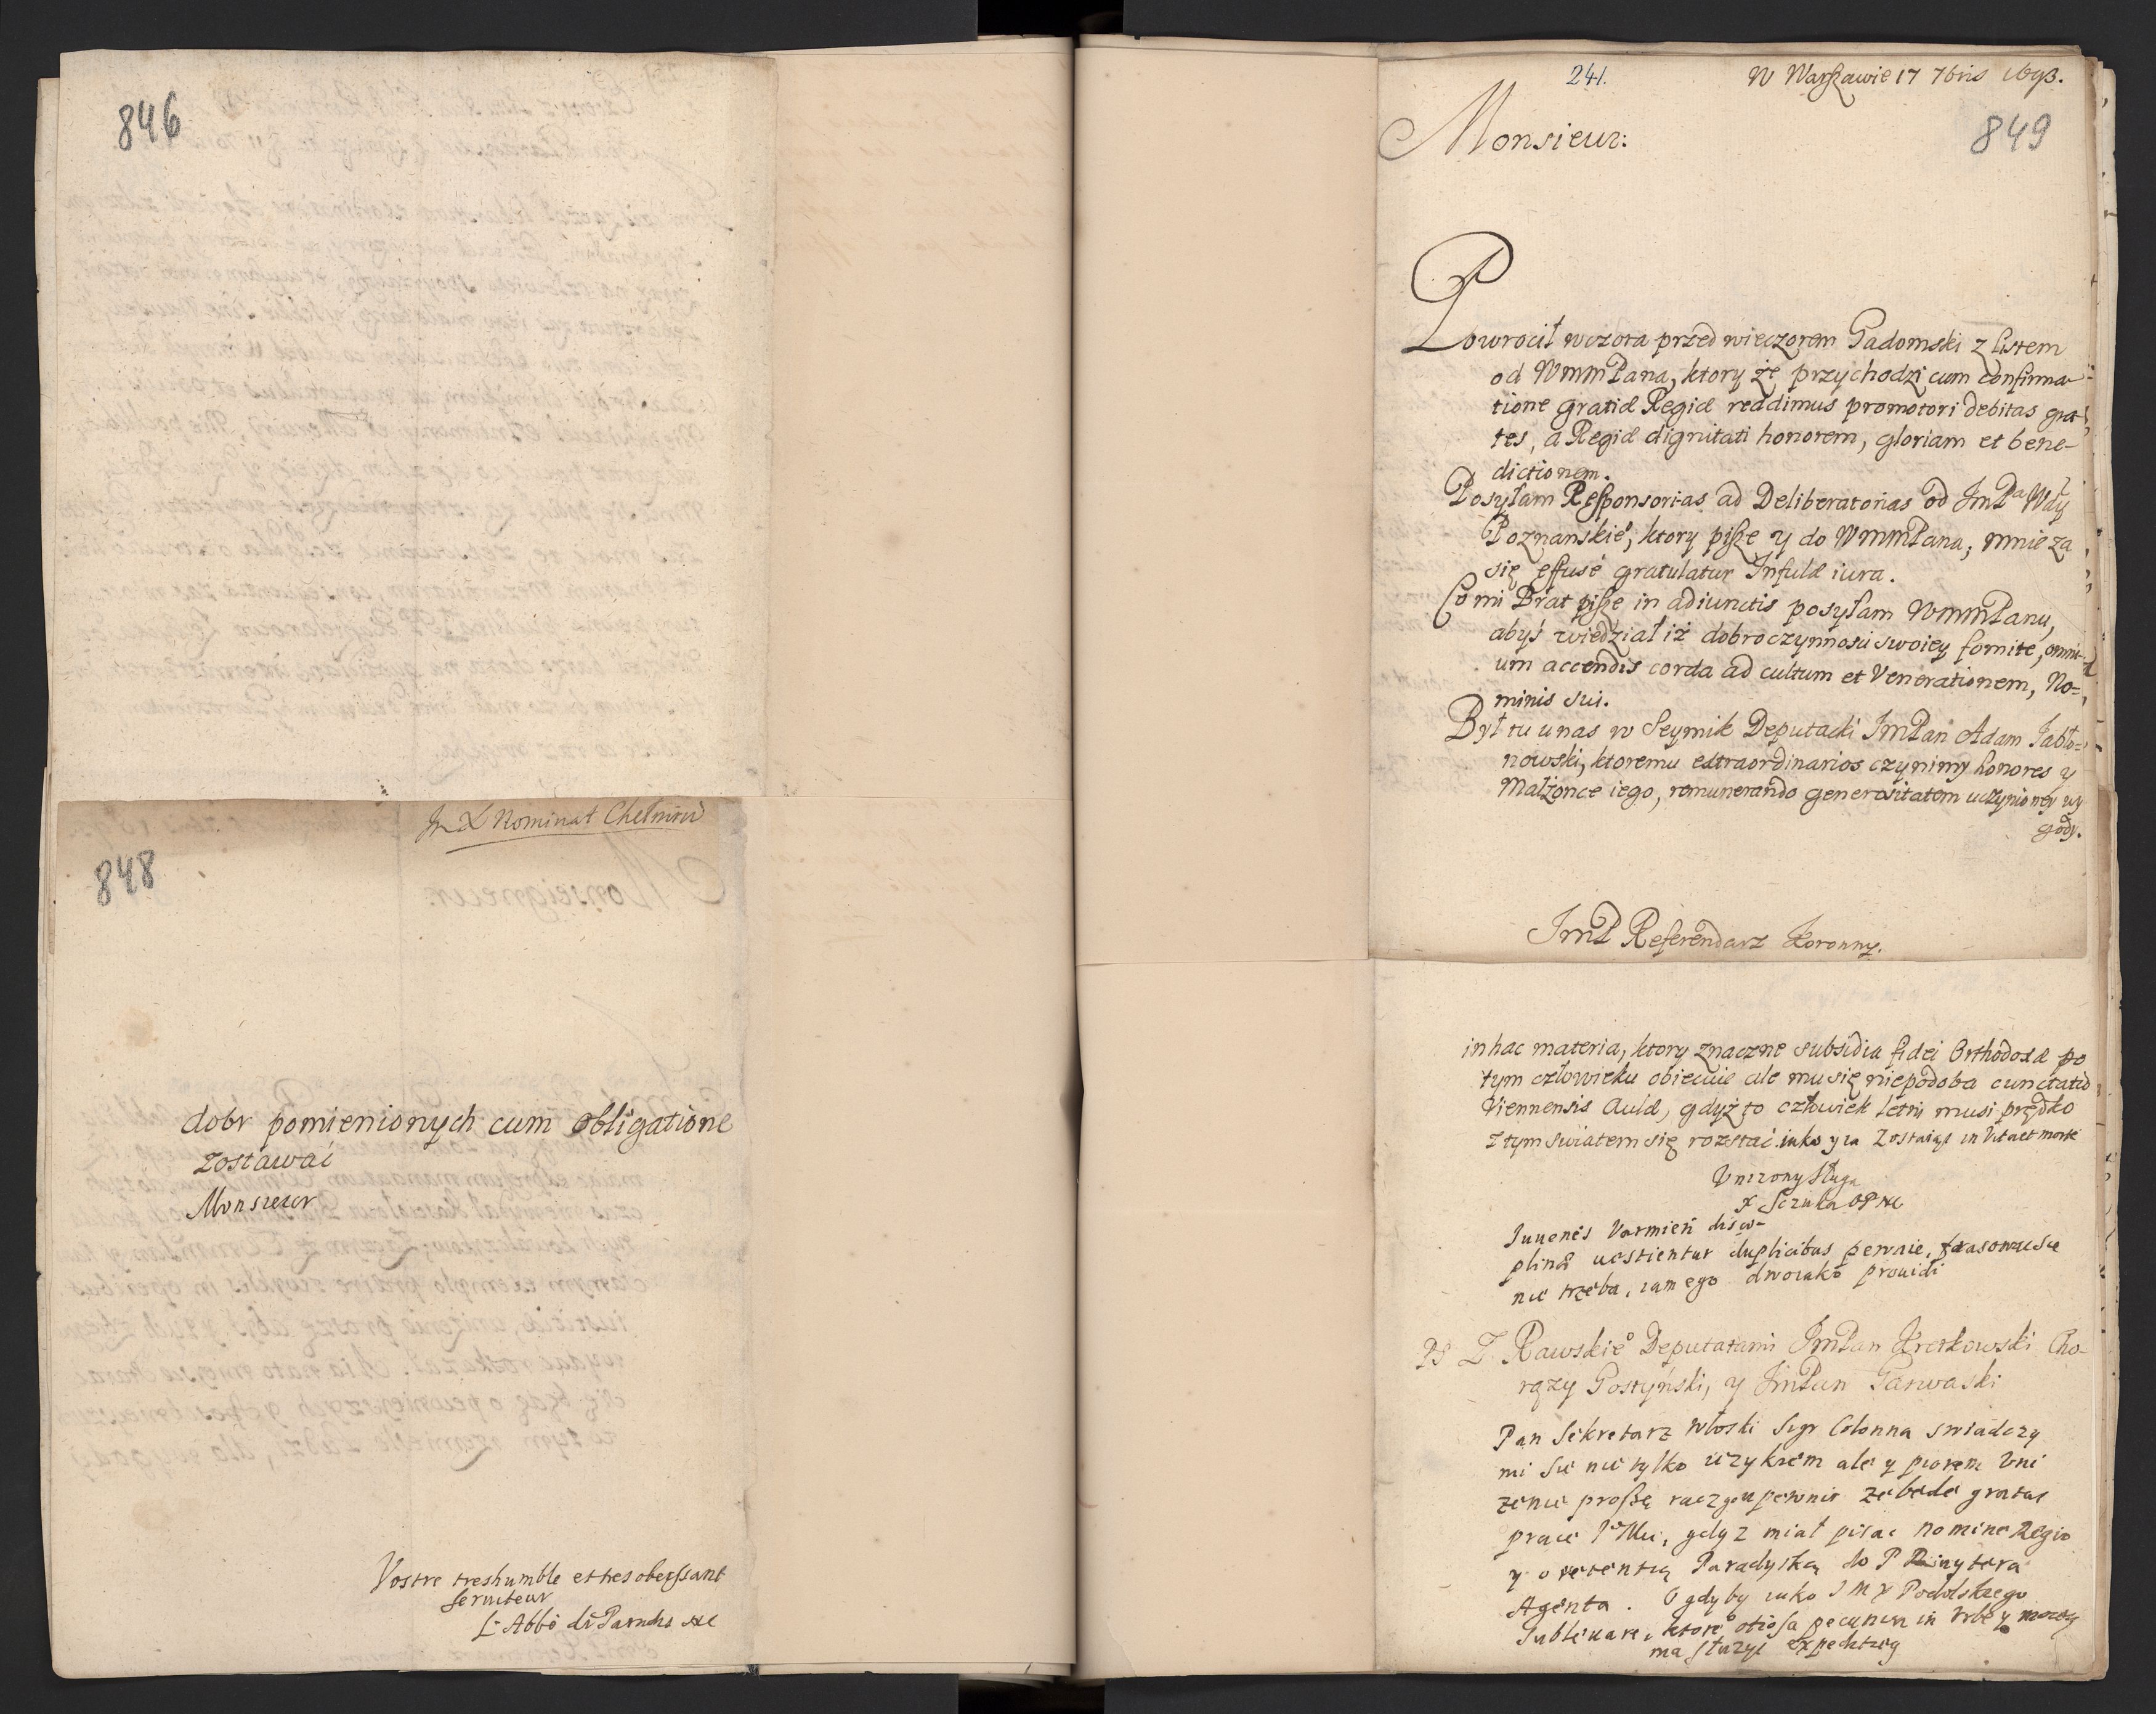 846
JmX Nominat Chełmiń
848
dobr pomienionych cum obligatione
zostawać
Monsieur
Vostre treshumble et tres obeissant
serviteur
L'Abbé de
241.
W Warszawie 17 7bris 1693.
849
Monsieur:
Powrocił wczora przed wieczorem Gadomski z listem
od WmmPana, ktory że przychodzi cum confirma-
tione gratiæ Regiæ reddimus promotori debitas gra-
tes, a Regiæ dignitati honorem, gloriam et bene-
dictionem.
Posyłam Responsorias ad Deliberatorias od JmPa Wdy
Poznanskieo, ktory pisze y do WmmPana, mnie za
się effusé gratulatur Infulæ iura.
Co mi Brat pisze in adiunctis posyłam WmmPanu,
abyś wiedział iż dobroczynnosci swoiey fomite, omni-
um accendis corda ad cultum et Venerationem, No-
minis sui.
Był tu u nas w Seymik Deputacki JmPan Adam Jabło-
nowski, ktoremu extraordinarios czynimy honores y
Małżonce iego, remunerando generositatem uczynioney wy
gody.
JmP Referendarz Koronny.
in hac materia, ktory znaczne subsidia fidei Orthodoxæ po
tym człowieku obiecuie ale mu się niepodoba cunctatio
Viennensis Aulæ, gdyż to człowiek letni musi prędko
z tym swiatem się rozstać iako y ia Zostaiąc in Vita et morte
Unizony sługa
X Sczuka OP
Juuenes Varmień disci-
plinâ uestientur duplicibus pewnie, frasowac sie
nie trzeba, iam ego dwoiako prouidi
PS Z Rawskieo Deputatami JmPan Kretkowski Cho-
rąży Gostyński, y JmPan Garwaski
Pan Sekretarz włoski Sigr Colonna swiadczy
mi sie nie tylko ięzykiem ale y piorem Uni
zenie proszę racz go upewnic ze bede gratus
prace Jego, gdyz miał pisac nomine Regio
y o retentią Paradyską do P
Agenta. O gdyby iako JMX Podolskiego
subleuare, ktore otiosa pecunia in Urbe y
ma służyc